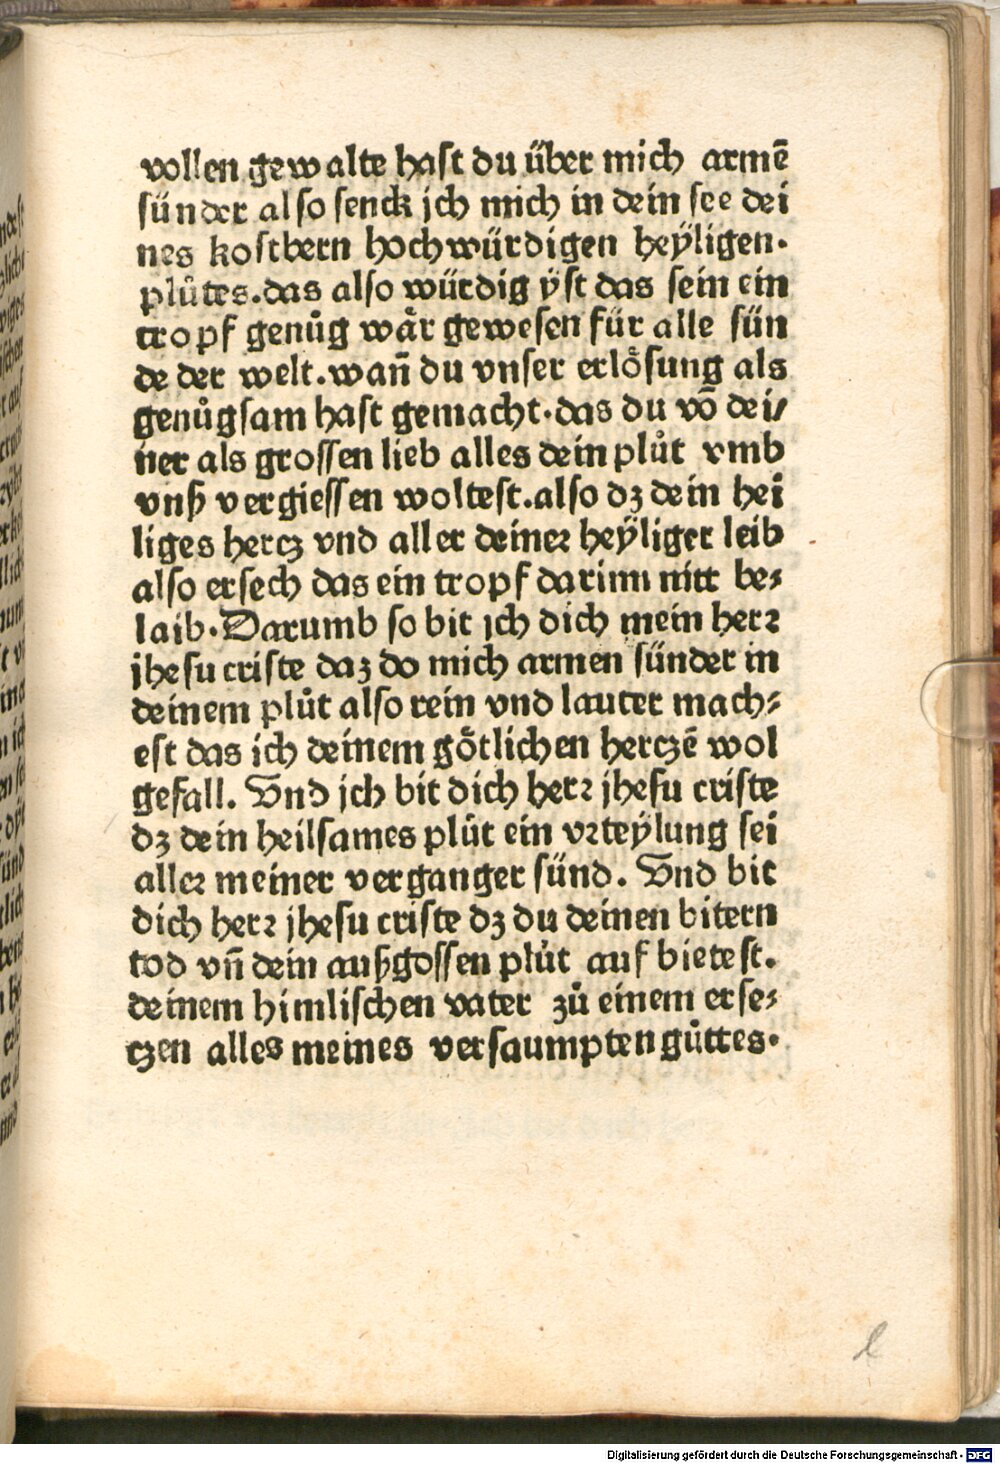 vollen gewalte haſt du über mich armē
ſünder alſo ſenck jch mich in dein ſee dei
nes koſtbern hochwürdigen heÿligen.
plůtes.das alſo würdig ÿſt das ſein ein
tropf genůg wår geweſen für alle ſün
de der welt.wañ du vnſer erlöſung als
genůgſam haſt gemacht.das du vō dei/
ner als groſſen lieb alles dein plůt vmb
vnß vergieſſen wolteſt.alſo dꝫ dein hei
liges hercꝫ vnd aller deineꝛ heÿliger leib
alſo erſech das ein tropf darinn nitt be⸗
laib.Darumb ſo bit jch dich mein herꝛ
jheſu criſte daꝫ do mich armen ſünder in
deinem plůt alſo rein vnd lauter mach⸗
eſt das ich deinem götlichen hercꝫē wol
gefall. Vnd jch bit dich herꝛ jheſu criſte
dꝫ dein heilſames plůt ein vꝛteÿlung ſei
alleꝛ meiner verganger ſünd. Vnd bit
dich herꝛ jheſu criſte dꝫ du deinen bitern
tod vñ dein außgoſſen plůt auf bieteſt.
deinem himliſchen vater zů einem erſe⸗
cꝫen alles meines verſaumpten gůttes.
Digitalisierung gefördert durch die Deutsche Forschungsgemeinschaft - DFG